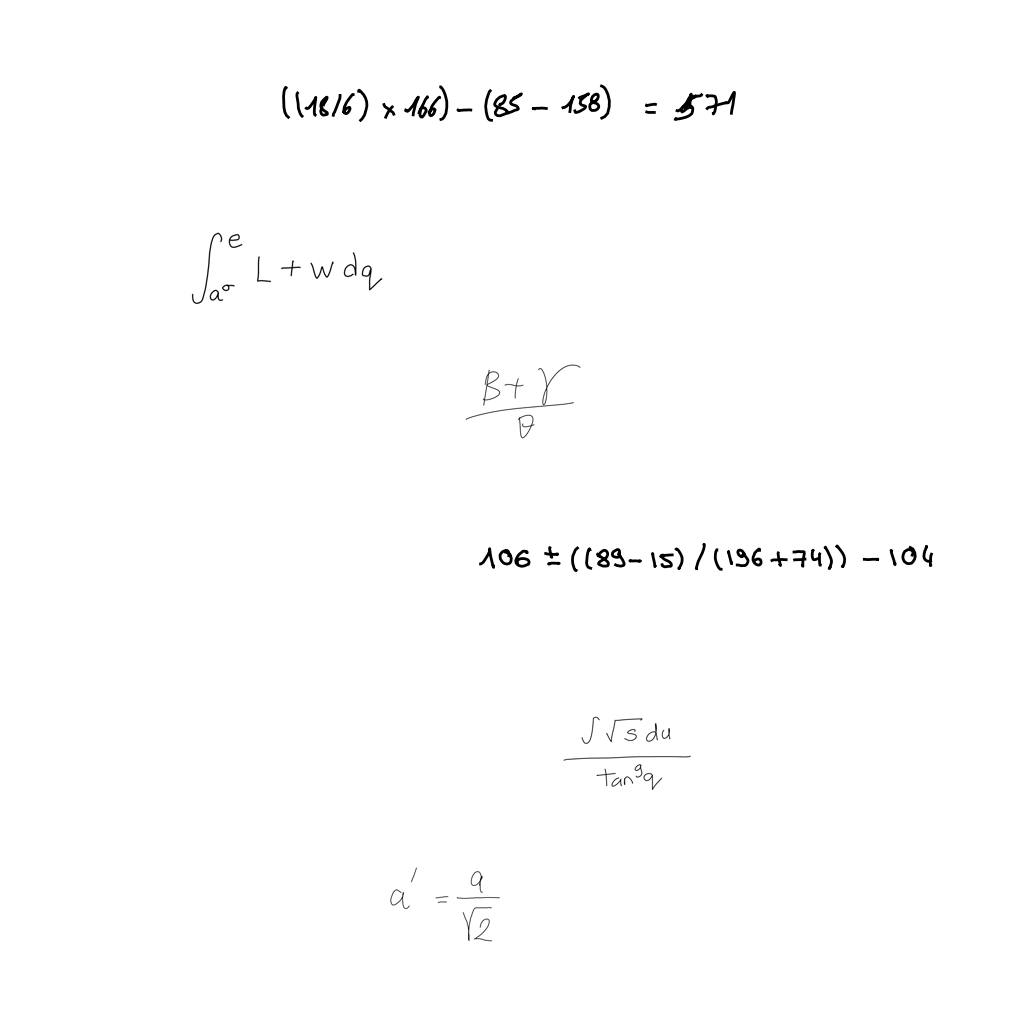 ((18/6) × 166) − (85 − 158) = 571
∫_{a^σ}^{e} L + w dq
\frac{β + γ}{θ}
106 ± ((89 − 15) / (196 + 74)) − 104
\frac{∫ √s du}{tan^g q}
a' = \frac{a}{√2}